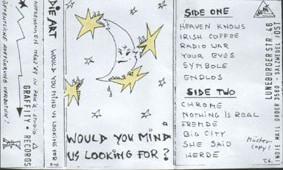 DIE ART
WOULD YOU MIND US LOOKING FOR?
GRAFFITY • RECORDS
WOULD YOU MIND
US LOOKING FOR?
SIDE ONE
HEAVEN KNOWS
IRISH COFFEE
RADIO WAR
YOUR EYES
SYMBOLE
ENDLOS
SIDE TWO
CHROME
NOTHING IS REAL
FREMDE
BIG CITY
SHE SAID
HERDE
LÜNEBURGERSTR. 48
INDIE MAIL ORDER 3560 - SALZWEDEL (OST)